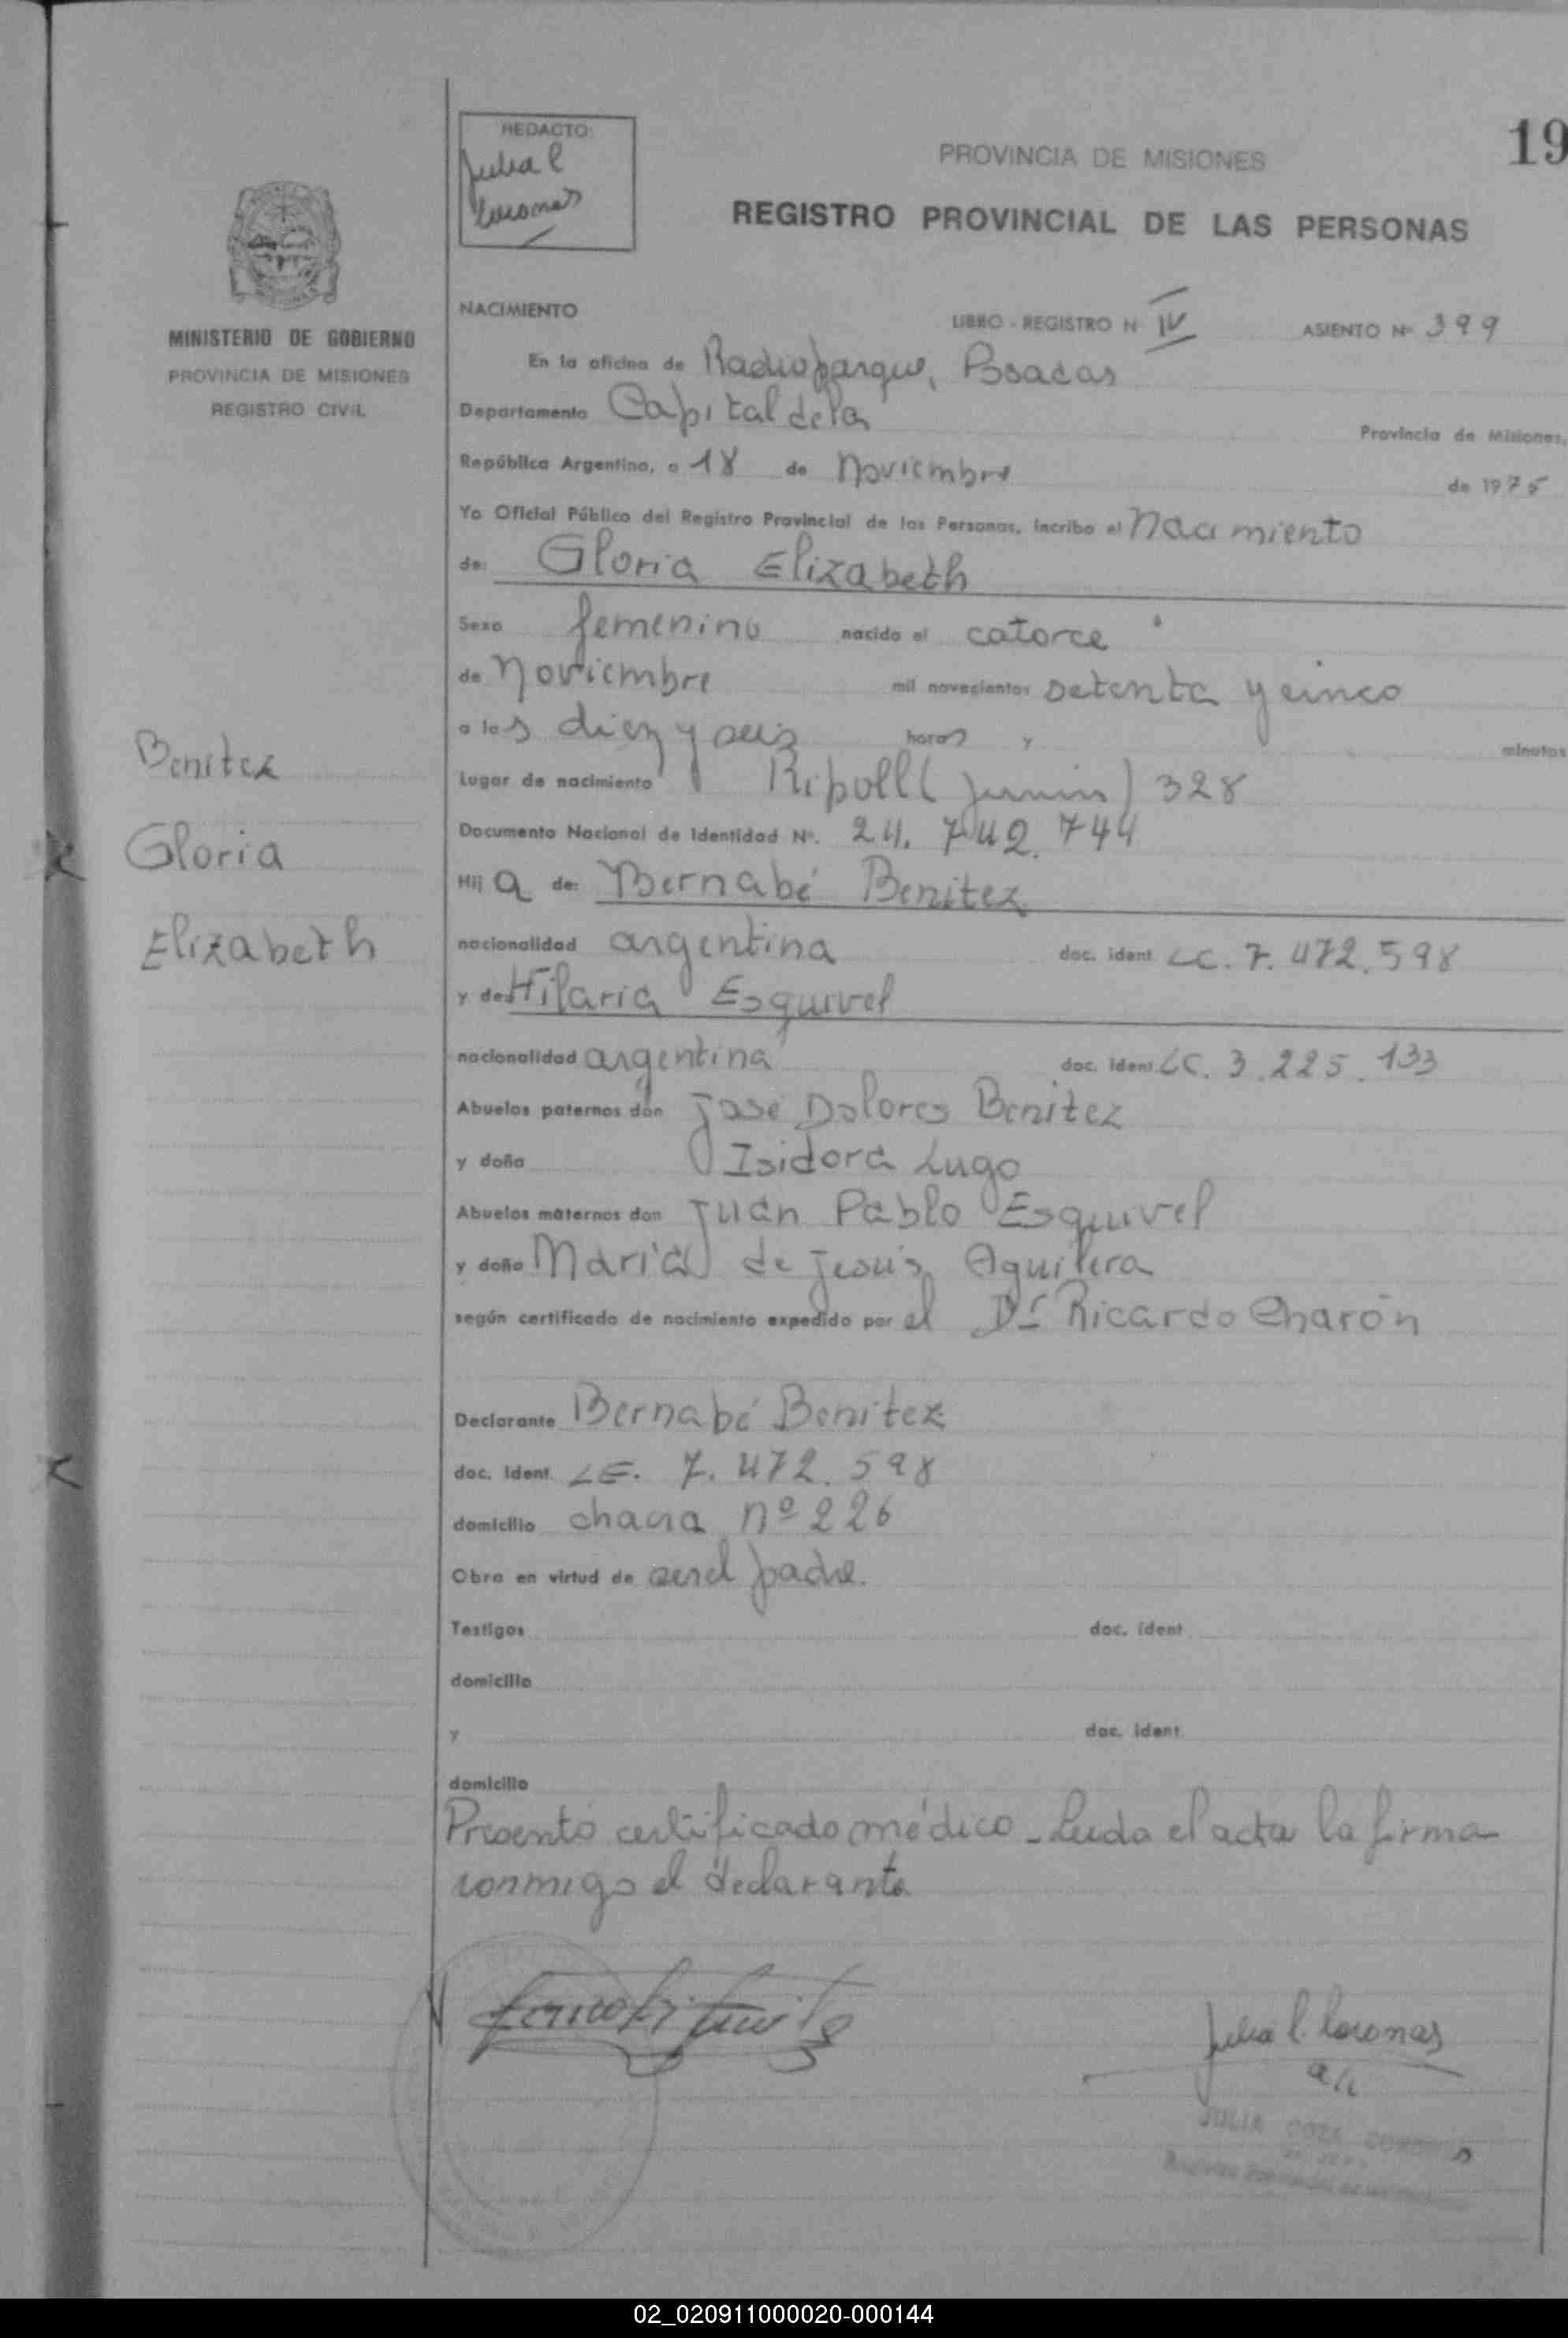 REDACTO:
Julia C
Coronas
PROVINCIA DE MISIONES
19
REGISTRO PROVINCIAL DE LAS PERSONAS
MINISTERIO DE GOBIERNO
PROVINCIA DE MISIONES
REGISTRO CIVIL
Benitez
Gloria
Elizabeth
NACIMIENTO LIBRO - REGISTRO N IV ASIENTO Nº 399
En la oficina de Radioparque, Posadas
Departamento Capital de la Provincia de Misiones,
República Argentina, a 18 de Noviembre de 1975
Yo Oficial Público del Registro Provincial de las Personas, incribo el Nacimiento
de: Gloria Elizabeth
Sexo femenino nacido el catorce
de Noviembre mil novecientos setenta y cinco
a las diez y seis horas y minutos
Lugar de nacimiento Ripoll (Junin) 328
Documento Nacional de Identidad Nº. 24.742.744
Hij a de: Bernabé Benitez
nacionalidad argentina doc. ident. LC. 7.472.598
y de: Hilaria Esquivel
nacionalidad argentina doc. ident. LC. 3.225.133
Abuelos paternos don José Dolores Benitez
y doña Isidora Lugo
Abuelos maternos don Juan Pablo Esquivel
y doña Maria de Jesús Aguilera
según certificado de nacimiento expedido por el Dr Ricardo Charón
Declarante Bernabé Benitez
doc. ident. LE. 7.472.598
domicilio chacra nº 226
Obra en virtud de ser el padre.
Testigos doc. ident.
domicilio
y doc. ident.
domicilio
Presentó certificado médico - Leida el acta la firma
conmigo el declarante
Julia C. Coronas
a/c
JULIA
02_020911000020-000144